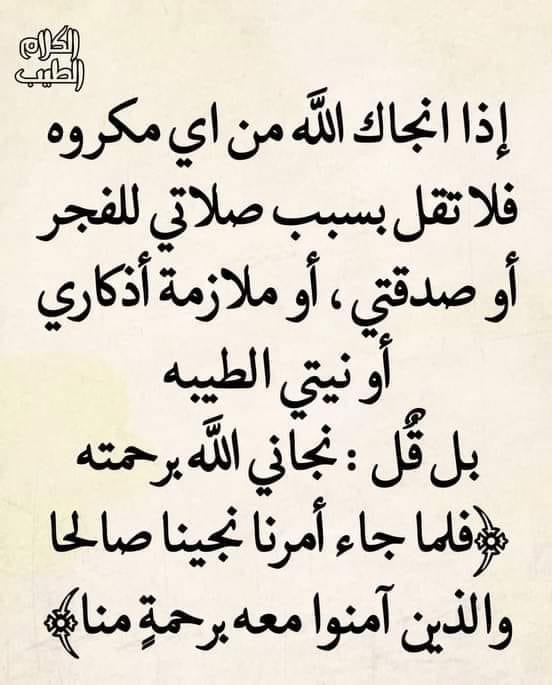 الكلام
الطيب
إذا انجاك اللَّه من اي مكروه
فلا تقل بسبب صلاتي للفجر
أو صدقتي ، أو ملازمة أذكاري
أو نيتي الطيبه
بل قٌل : نجاني اللَّه برحمته
﴿فلما جاء أمرنا نجينا صالحا
والذين آمنوا معه برحمةٍ منا﴾